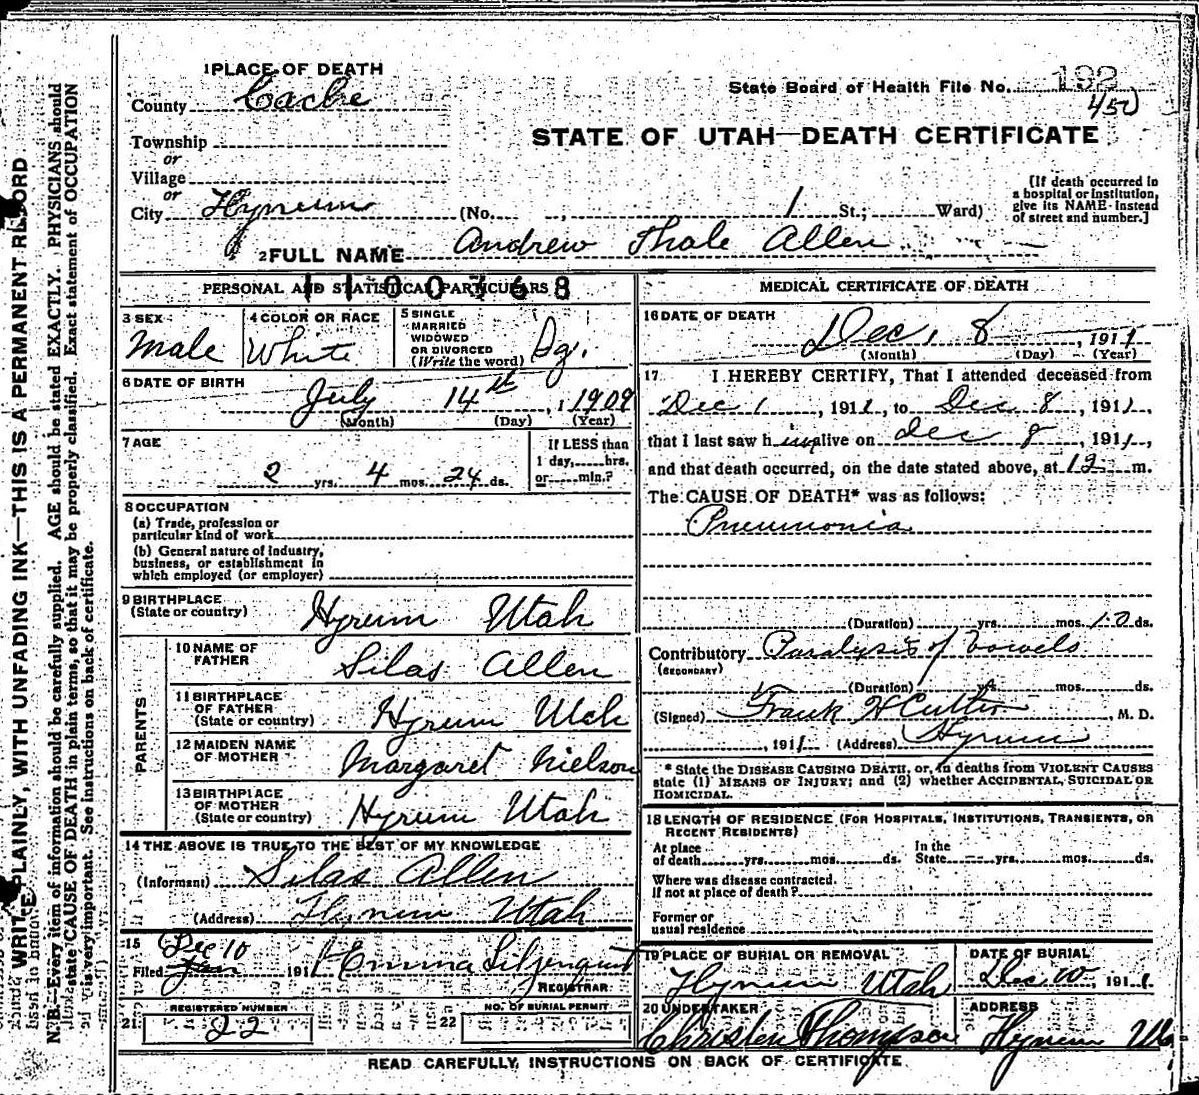 1 PLACE OF DEATH
County Cache
State Board of Health File No. 192
450
Township
or
Village
or
City Hyrum (No. , 1 St.; Ward)
STATE OF UTAH—DEATH CERTIFICATE
[If death occurred in a hospital or institution, give its NAME instead of street and number.]
2 FULL NAME Andrew Thale Allen
1100368
PERSONAL AND STATISTICAL PARTICULARS
3 SEX Male
4 COLOR OR RACE White
5 SINGLE MARRIED WIDOWED OR DIVORCED (Write the word) Sg.
6 DATE OF BIRTH
July 14th, 1909
(Month) (Day) (Year)
7 AGE
2 yrs. 4 mos. 24 ds.
If LESS than 1 day,.....hrs. or.....min.?
8 OCCUPATION
(a) Trade, profession or particular kind of work
(b) General nature of industry, business, or establishment in which employed (or employer)
9 BIRTHPLACE (State or country) Hyrum Utah
PARENTS
10 NAME OF FATHER Silas Allen
11 BIRTHPLACE OF FATHER (State or country) Hyrum Utah
12 MAIDEN NAME OF MOTHER Margaret Nielson
13 BIRTHPLACE OF MOTHER (State or country) Hyrum Utah
14 THE ABOVE IS TRUE TO THE BEST OF MY KNOWLEDGE
(Informant) Silas Allen
(Address) Hyrum Utah
15 Dec 10
Filed Jan 1911 Emma Liljenquist
REGISTRAR
REGISTERED NUMBER
21 22
NO. OF BURIAL PERMIT
22
MEDICAL CERTIFICATE OF DEATH
16 DATE OF DEATH
Dec, 8, 1911
(Month) (Day) (Year)
17 I HEREBY CERTIFY, That I attended deceased from
Dec 1, 1911, to Dec 8, 1911,
that I last saw him alive on Dec 8, 1911,
and that death occurred, on the date stated above, at 12 m.
The CAUSE OF DEATH* was as follows:
Pneumonia
(Duration) yrs. mos. 10 ds.
Contributory Paralysis of bowels
(SECONDARY)
(Duration) yrs. mos. ds.
(Signed) Frank H Cutler, M. D.
, 1911 (Address) Hyrum
* State the DISEASE CAUSING DEATH, or, in deaths from VIOLENT CAUSES state (1) MEANS OF INJURY; and (2) whether ACCIDENTAL, SUICIDAL OR HOMICIDAL.
18 LENGTH OF RESIDENCE (FOR HOSPITALS, INSTITUTIONS, TRANSIENTS, OR RECENT RESIDENTS)
At place of death yrs. mos. ds. In the State yrs. mos. ds.
Where was disease contracted. If not at place of death?
Former or usual residence
19 PLACE OF BURIAL OR REMOVAL Hyrum Utah
DATE OF BURIAL Dec 10, 1911
20 UNDERTAKER Christen Thompson
ADDRESS Hyrum
READ CAREFULLY, INSTRUCTIONS ON BACK OF CERTIFICATE
WRITE PLAINLY, WITH UNFADING INK—THIS IS A PERMANENT RECORD
N. B.—Every item of information should be carefully supplied. AGE should be stated EXACTLY. PHYSICIANS should
state CAUSE OF DEATH in plain terms, so that it may be properly classified. Exact statement of OCCUPATION
is very important. See instructions on back of certificate.